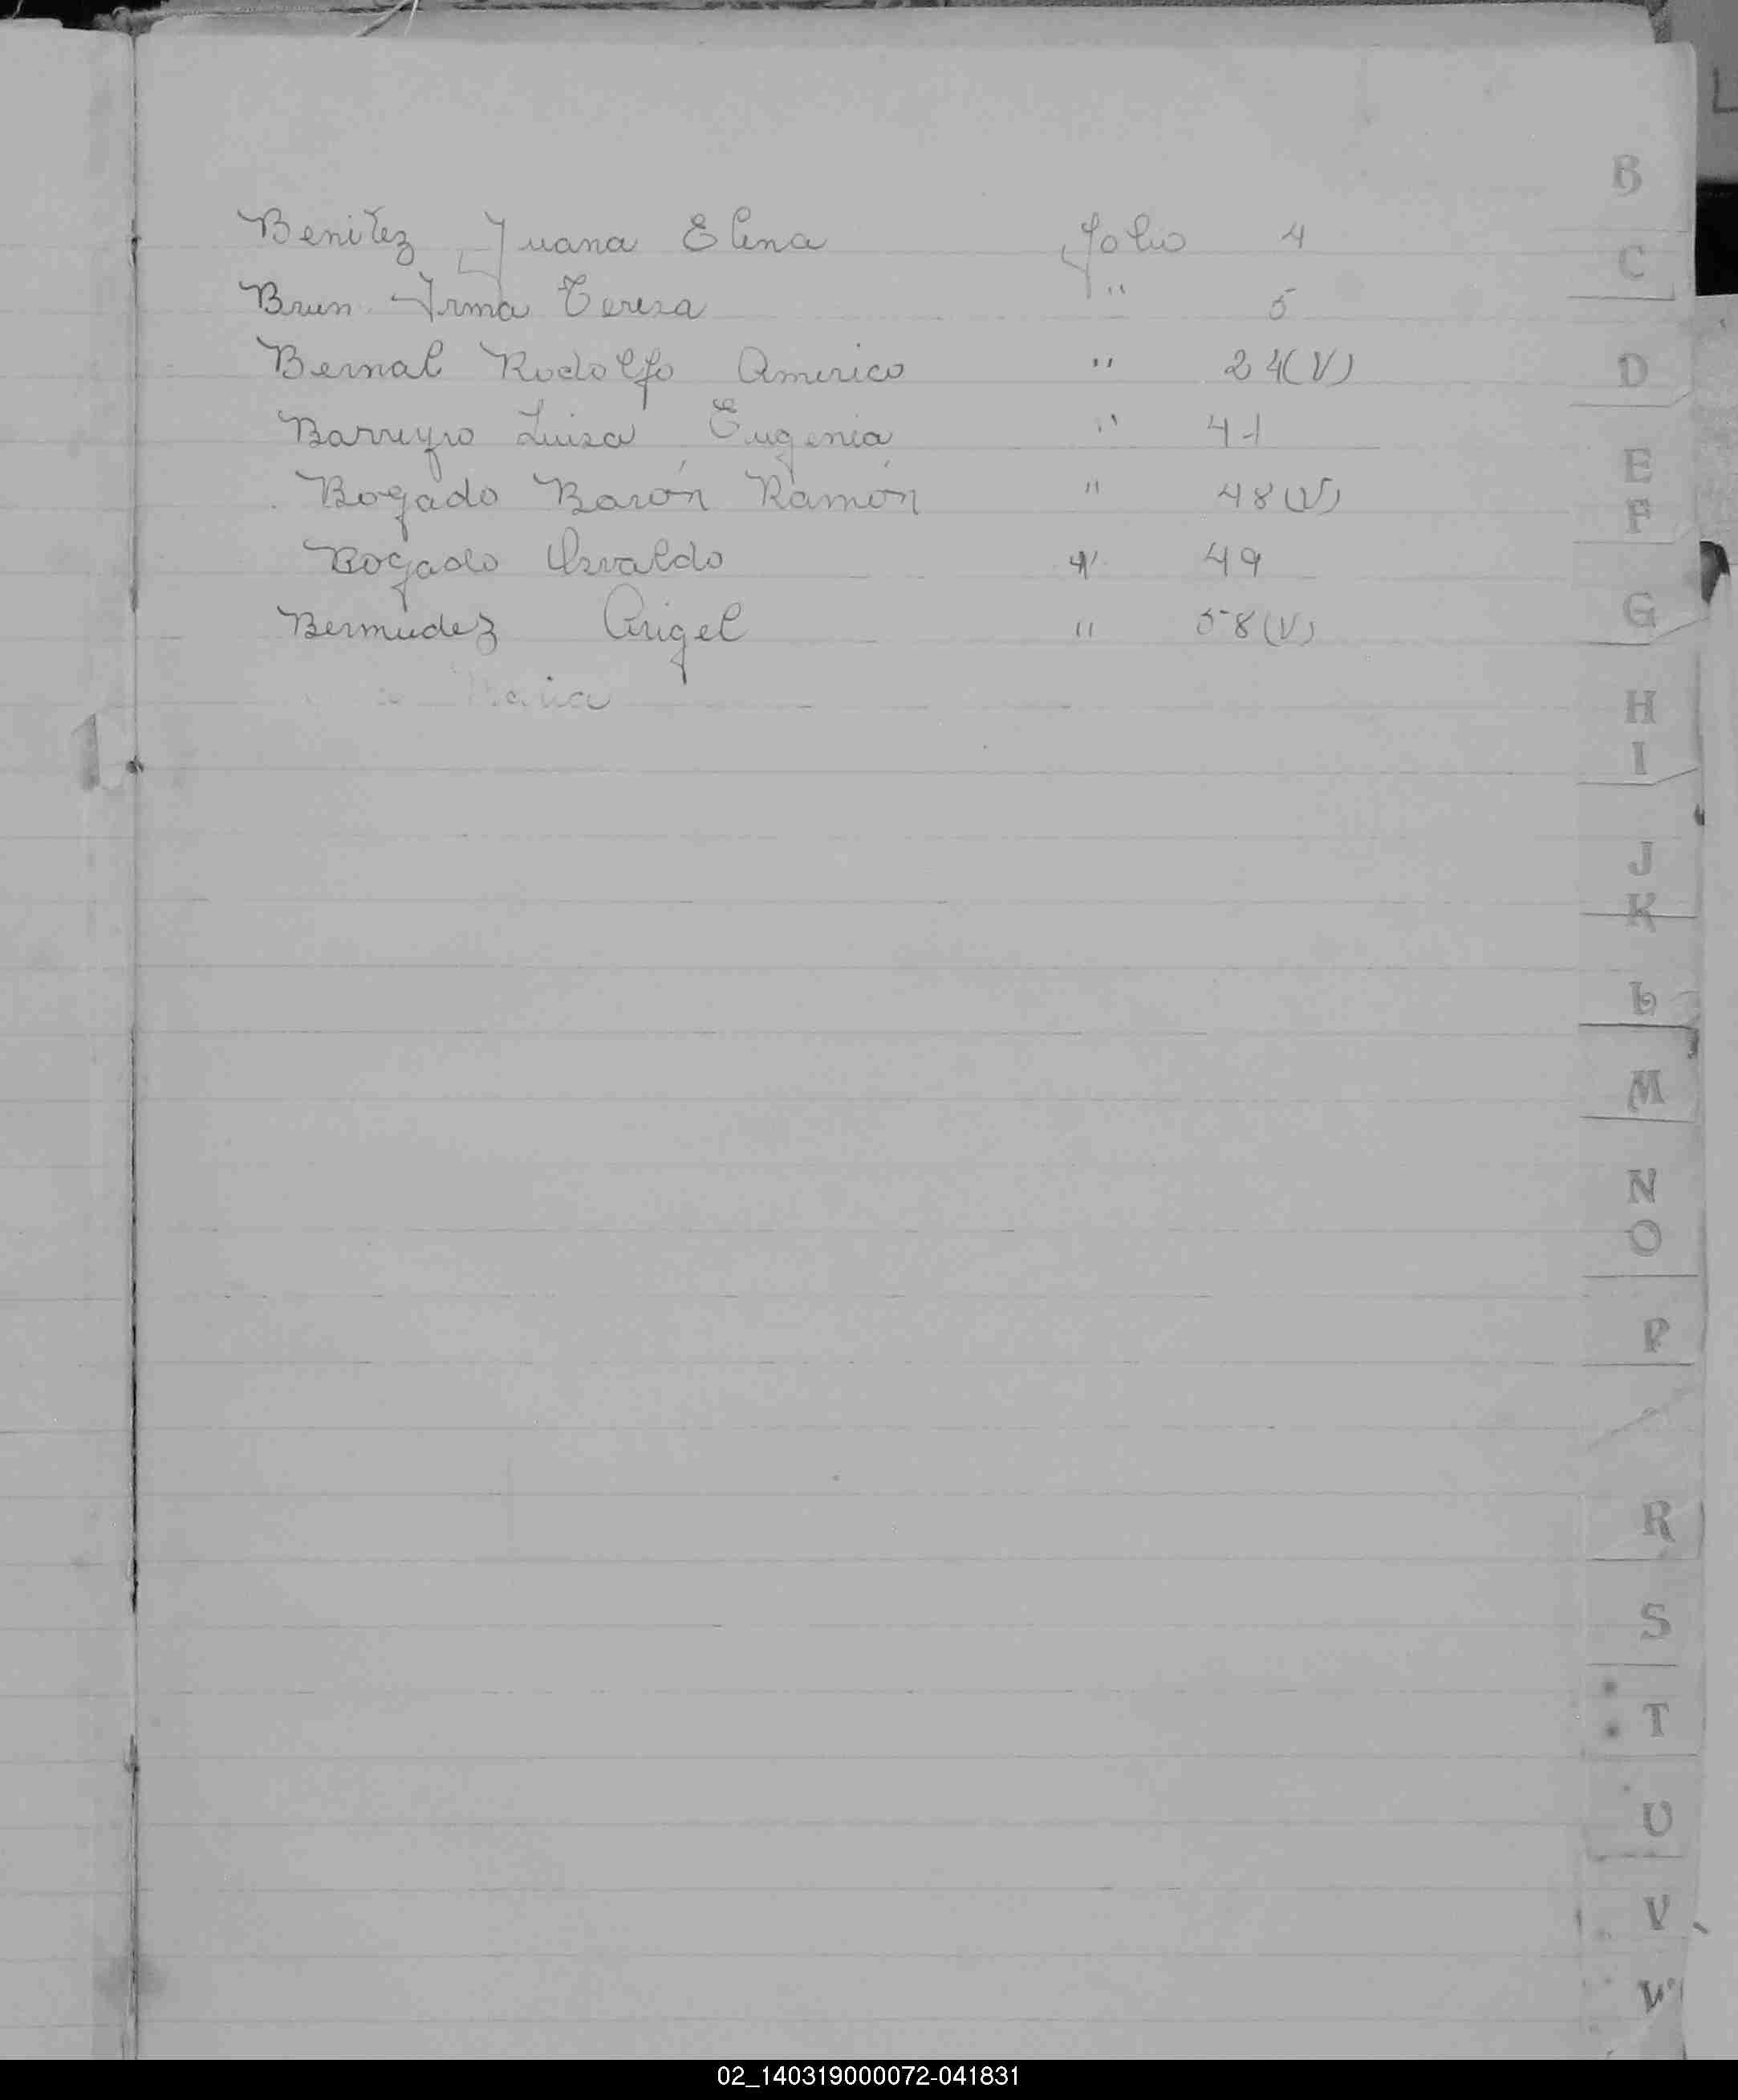 Benitez Juana Elena Folio 4
Brun Irma Teresa " 5
Bernal Rodolfo Americo " 24(V)
Barreyro Luisa Eugenia " 41
Bogado Barón Ramón " 48(V)
Bogado Osvaldo " 49
Bermudez Angel " 58(V)
Maria
B
C
D
E
F
G
H
I
J
K
L
M
N
O
P
R
S
T
U
V
W
02_140319000072-041831